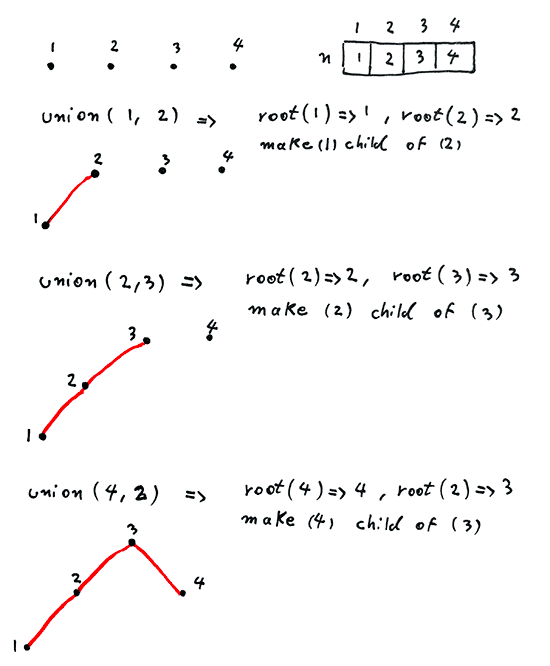 1 2 3 4
1 2 3 4
n 1 2 3 4
union(1, 2) => root(1)=>1, root(2)=>2
make(1) child of (2)
2 3 4
1
union(2,3) => root(2)=>2, root(3)=>3
make (2) child of (3)
3 4
2
1
union(4,2) => root(4)=>4, root(2)=>3
make (4) child of (3)
3
2 4
1